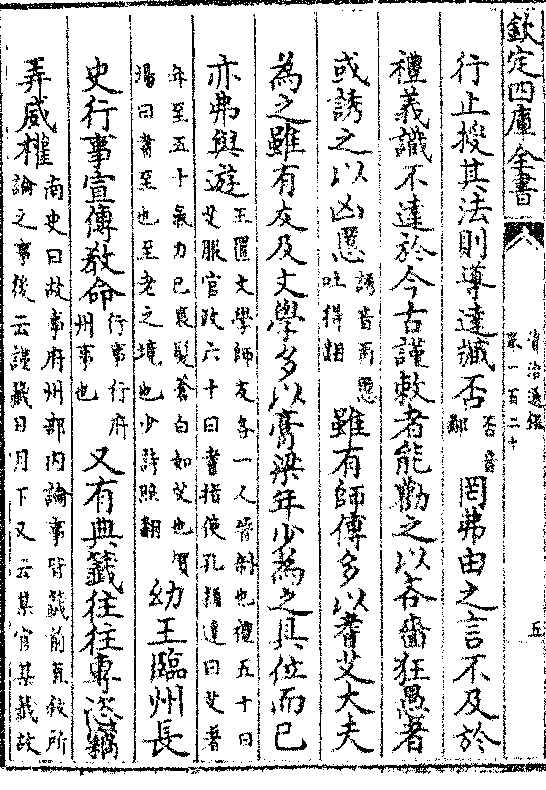 欽定四庫全書
資治通鑑
卷一百二十
五
行止授其法則導達臧否否音鄙罔弗由之言不及於
禮義識不達於今古謹敕者能勸之以吝嗇狂愚者
或誘之以凶慝誘音酉慝吐得翻雖有師傅多以耆艾大夫
為之雖有友及文學多以膏粱年少為之具位而已
亦弗與遊王置文學師友各一人晉制也禮五十曰艾服官政六十曰耆指使孔穎達曰艾者
年至五十氣力已衰髮蒼白如艾也賀瑒曰耆至也至老之境也少詩照翻幼王臨州長
史行事宣傳敎命行事行府州事也又有典籤往往專恣竊
弄威權南史曰故事府州部內論事皆籤前直敘所論之事後云謹籤日月下又云某官某籤故